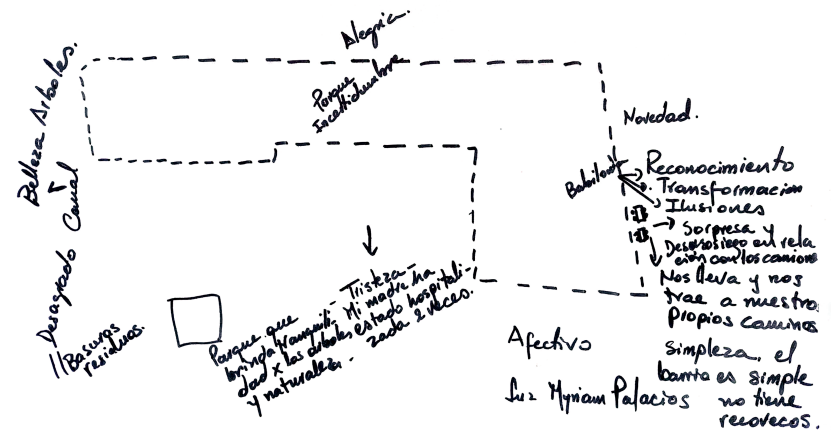 Alegria.
Belleza Arboles.
y
Desagrado Canal
Parque
Incertidumbre
Novedad.
Babilonia
Reconocimiento
Transformación
Ilusiones
Sorpresa y
Desasosiego en rela
ción con los camione
Nos lleva y nos
trae a nuestro
Propios Caminos
Simpleza, el
barrio es simple
no tiene
recovecos.
Basuras
residuos.
Parque que
brinda tranquili-
dad x los arboles
y naturaleza -
Tristeza -
Mi madre ha
estado hospitali-
zada 2 veces.
Afectivo
Luz Myriam Palacios